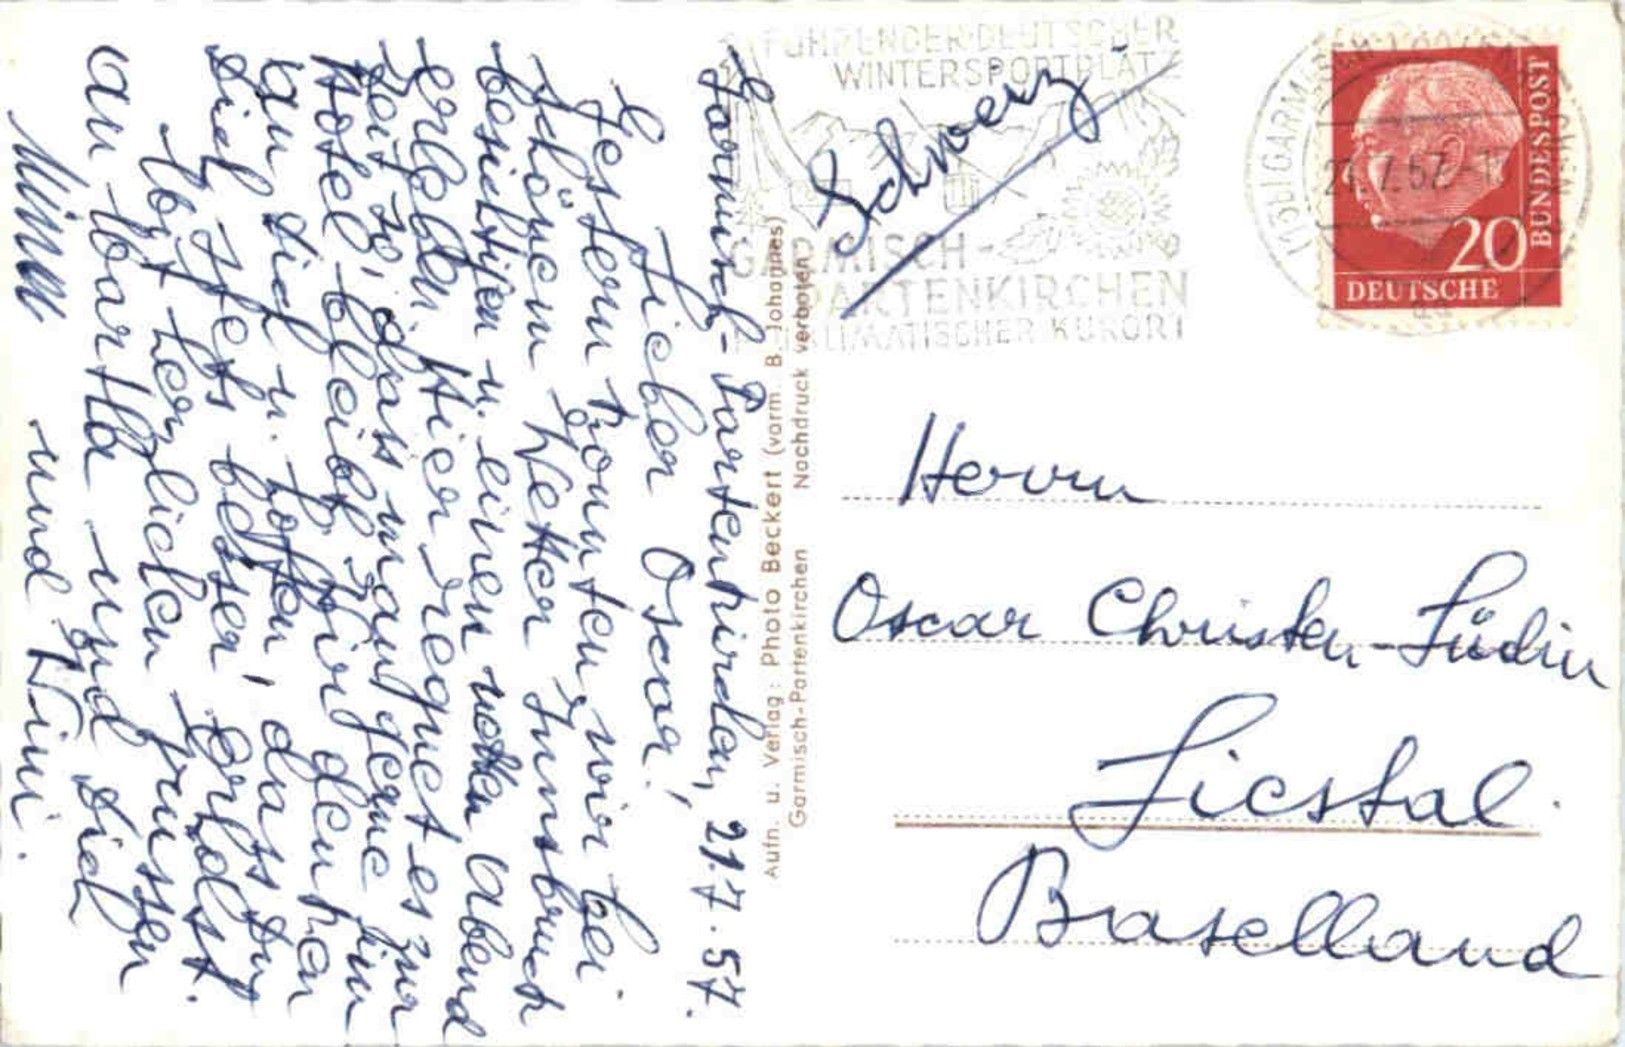 Garmisch-Partenkirchen, 21.7.57.
Lieber Oscar!
Gestern konnten wir bei
schönem Wetter Innsbruck
besichtigen u. einen netten Abend
erleben. Hier regnet es zur
Zeit so, dass man gerne im
Hotel bleibt. Wir denken
an Dich u. hoffen, dass Du
Dich stets besser erholst.
Wir herzlichen grüssen
an Martha und Dich
und Mini.
FÜHRENDER DEUTSCHER
WINTERSPORTPLATZ
GARMISCH-
PARTENKIRCHEN
KLIMATISCHER KURORT
Schweiz
21.7.57.-1
DEUTSCHE
BUNDESPOST
20
Aufn. u. Verlag: Photo Beckert (vorm. B. Johannes)
Garmisch-Partenkirchen Nachdruck verboten
Herrn
Oscar Christen-Lüdin
Liestal.
Baselland